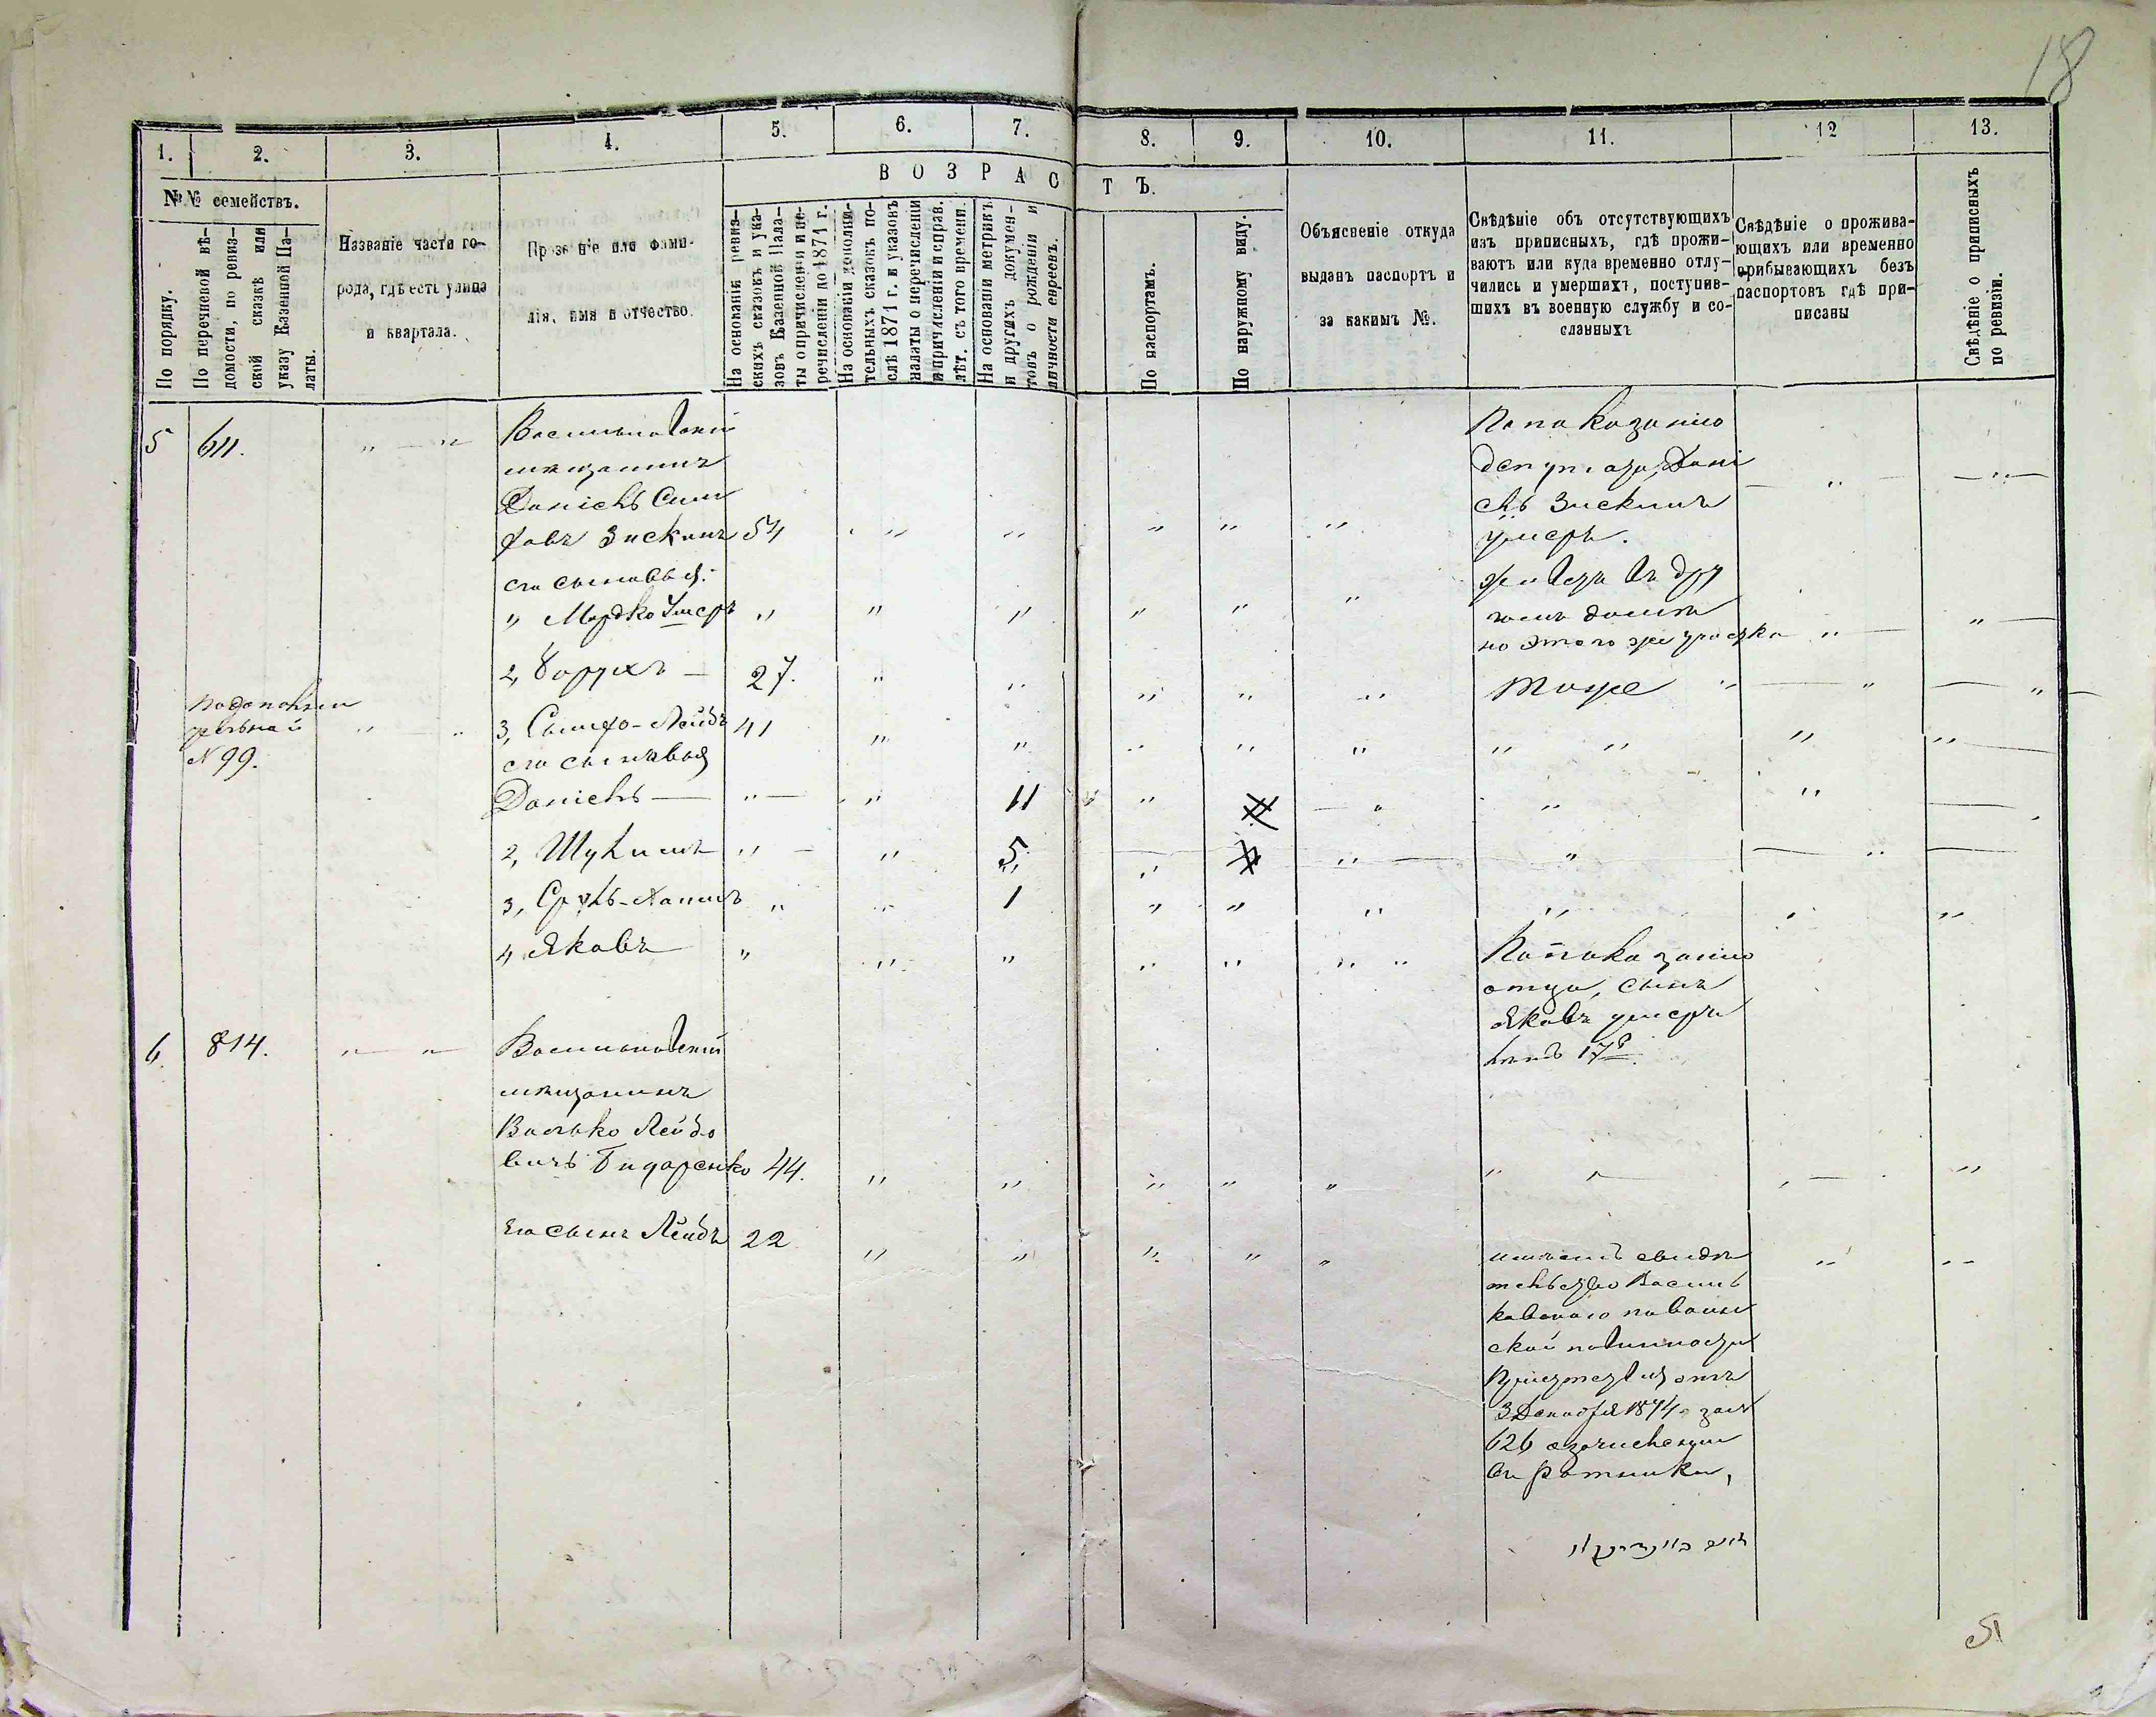 18
1. 2. 3. 4. 5. 6. 7. 8. 9. 10. 11. 12 13.
В О З Р А С Т Ъ.
№№ семействъ.
По порядку.
По перечневой вѣ-
домости, по ревиз-
ской сказкѣ или
указу Казенной Па-
латы.
Названіе части го-
рода, гдѣ есть улица
и квартала.
Прозваніе или фами-
лія, имя и отчество.
На основаніи ревиз-
скихъ сказокъ и ука-
зовъ Казенной Пала-
ты о причисленіи и пе-
речисленіи до 1871 г.
На основаніи дополни-
тельныхъ сказокъ по-
слѣ 1871 г. и указовъ
палаты о перечисленіи
и причисленіи и справ.
лѣт. съ того времени.
На основаніи метрикъ
и другихъ докумен-
товъ о рожденіи и
личности евреевъ.
По паспортамъ.
По наружному виду.
Объясненіе откуда
выданъ паспортъ и
за какимъ №.
Свѣдѣніе объ отсутствующихъ
изъ приписныхъ, гдѣ прожи-
ваютъ или куда временно отлу-
чились и умершихъ, поступив-
шихъ въ военную службу и со-
сланныхъ
Свѣдѣніе о прожива-
ющихъ или временно
прибывающихъ безъ
паспортовъ гдѣ при-
писаны
Свѣдѣніе о приписныхъ
по ревизіи.
5 611. Васильковскій
мѣщанинъ
Даніель Сим
ховъ Зискинъ 54
его сыновья:
" Мордко Умеръ
2, Борухъ 27.
3, Симхо-Лейбъ 41
его сыновья
Даніель 11
2, Шулимъ 5
3, Сруль-Хаимъ 1
4 Яковъ
№ 99.
По показанію
депутата, Дані
ель Зискинъ
умеръ.
живетъ въ дру
гомъ домѣ
но этого же участка
тоже
По показанію
отца, сынъ
Яковъ умеръ
6. 814. Васильковскій
мѣщанинъ
Волько Лейбо
вичъ Бидаренко 44.
его сынъ Лейбъ 22
имѣетъ свидѣ
тельство Василь
ковскаго по воин
ской повинности
Присутствія отъ
3 Декабря 1874 за №
626 о зачисленіи
въ ратники,